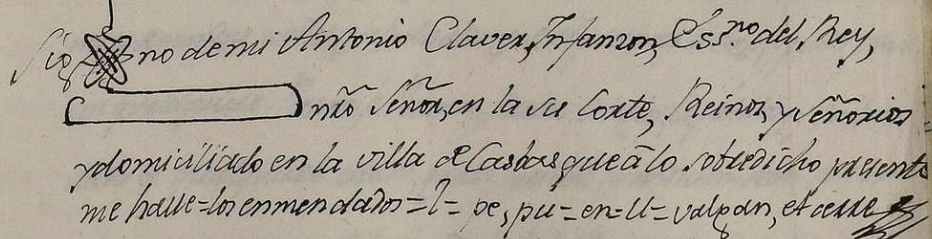 Sig no de mi Antonio Claver, Infanzon, Ess.no del Rey,
nro Señor, en la su Corte, Reinos, y Señorios
y domiciliado en la villa de Casbas que à lo sobredicho presente
me halle = los enmendados = l = pe, pu = en = ll = valgan, et cerre